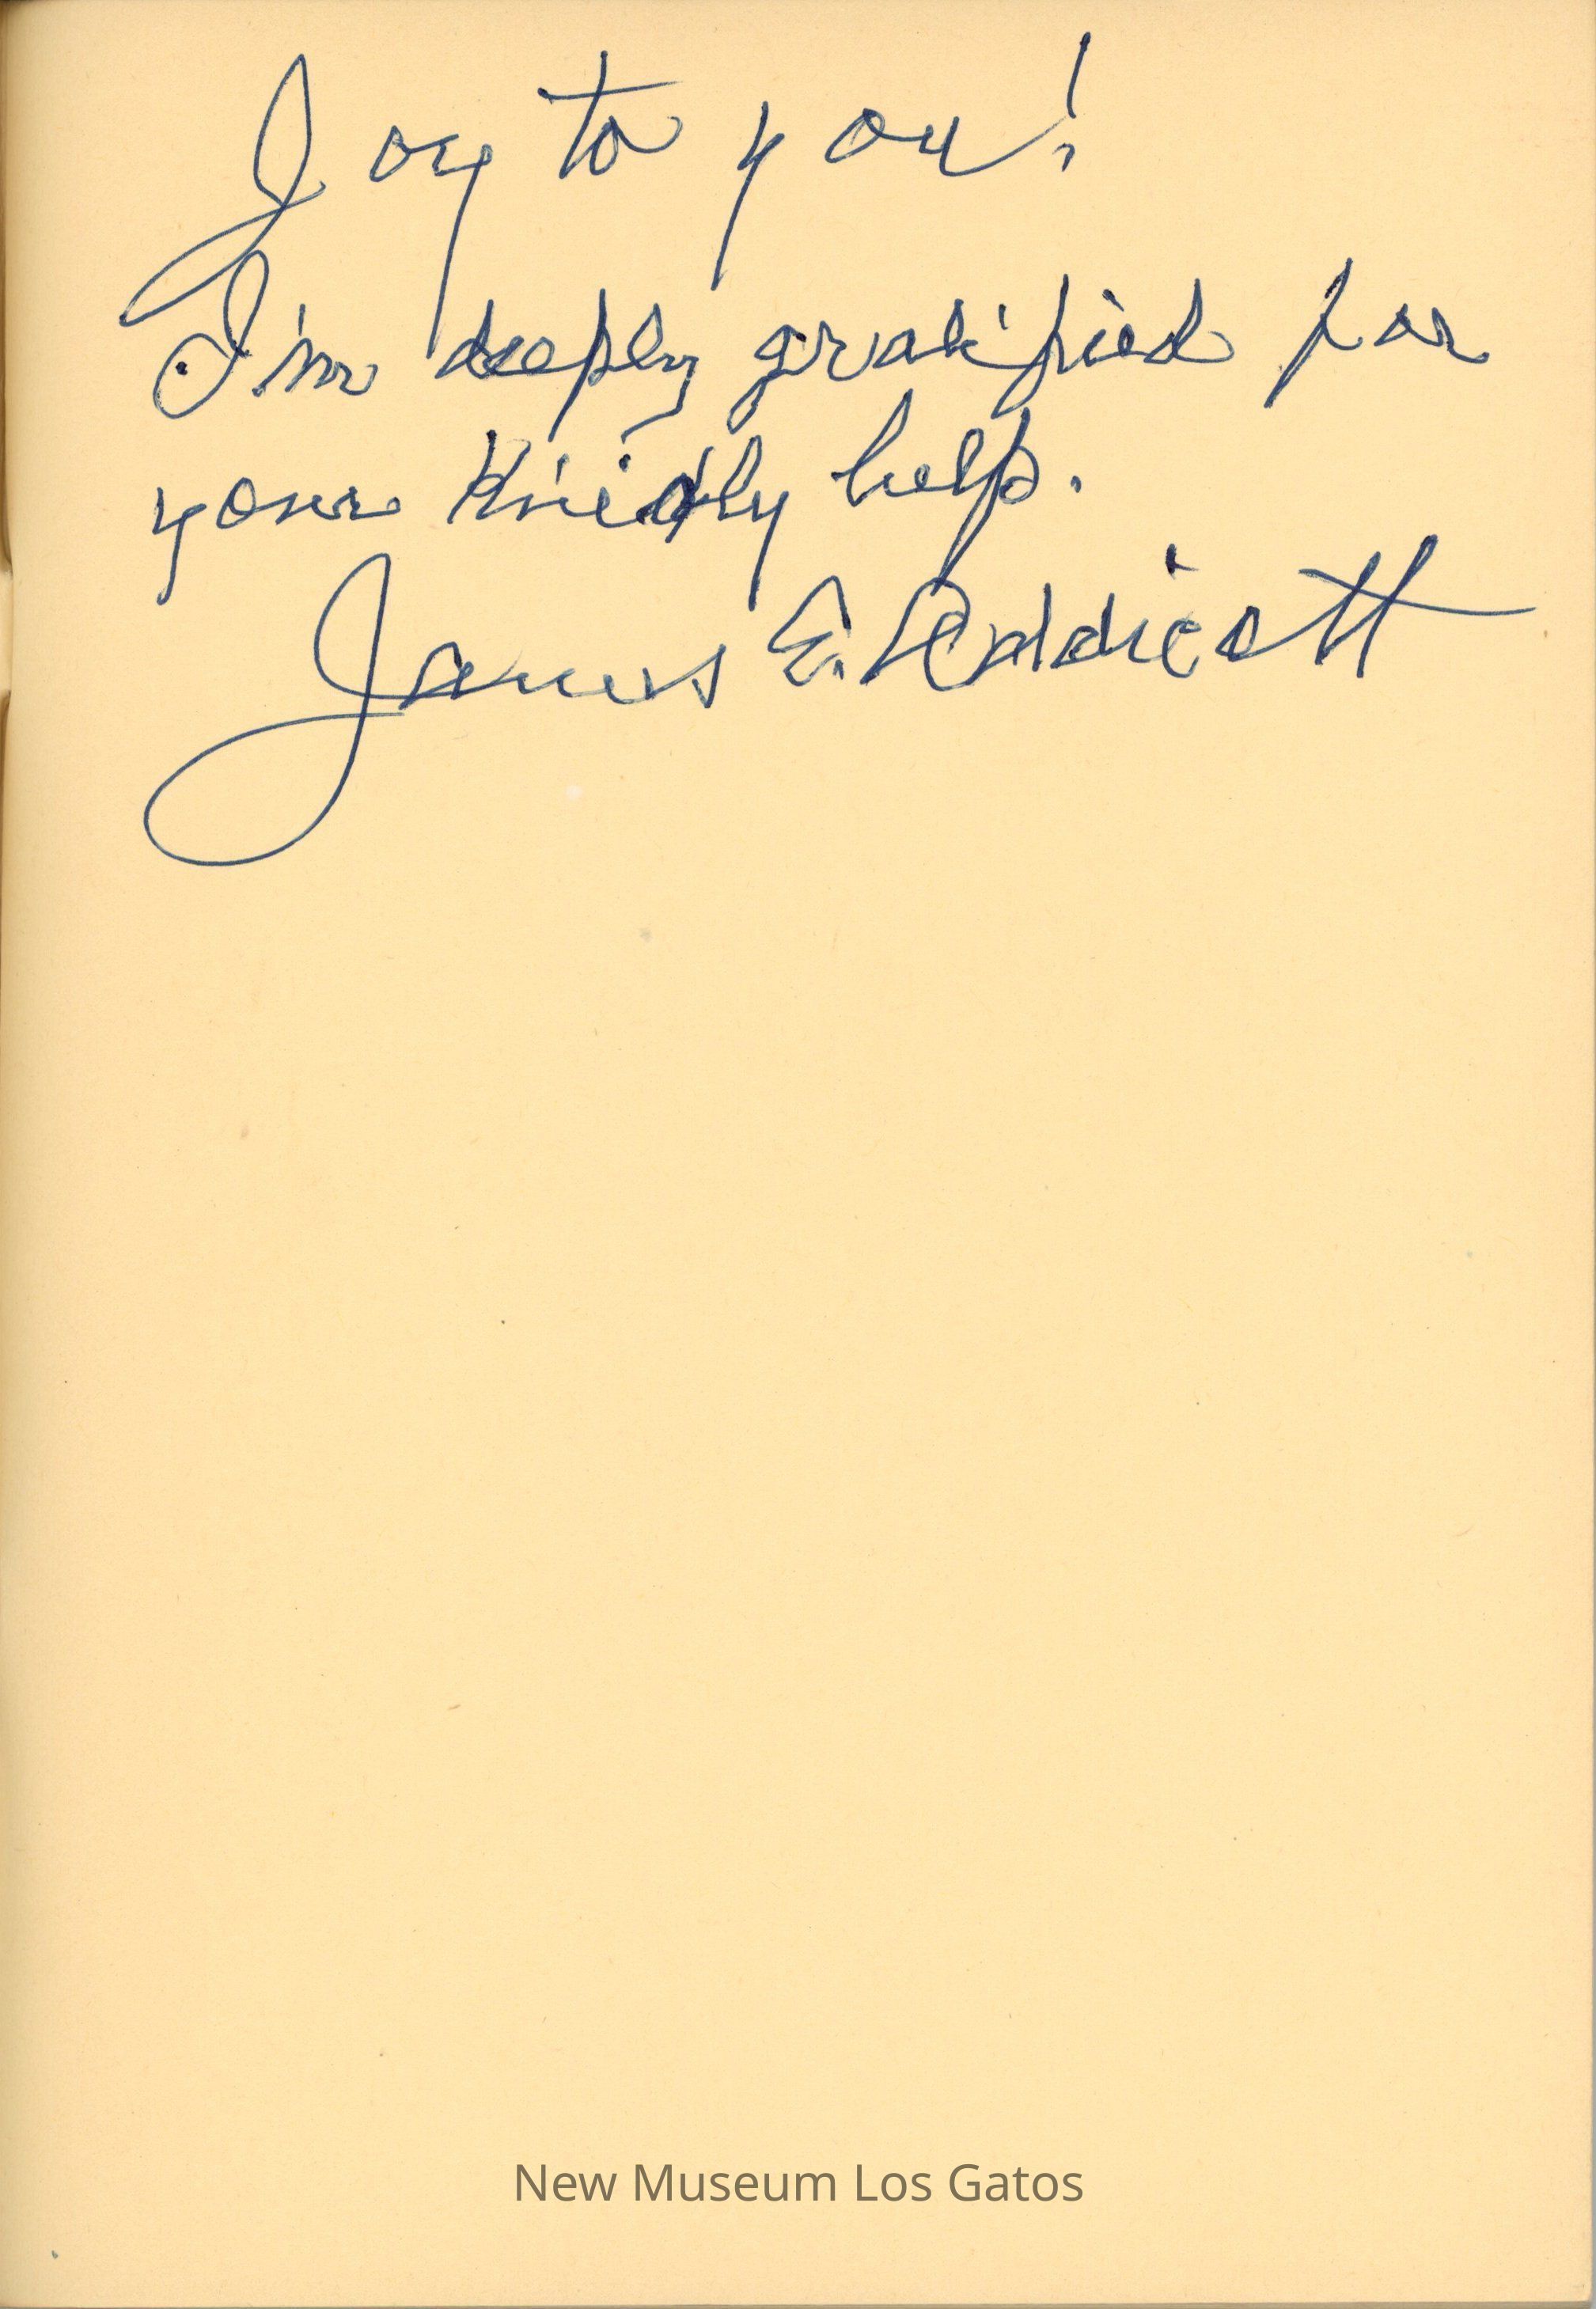 Joy to you!
I'm deeply gratified for
your kindly help.
James E. Addicott
New Museum Los Gatos